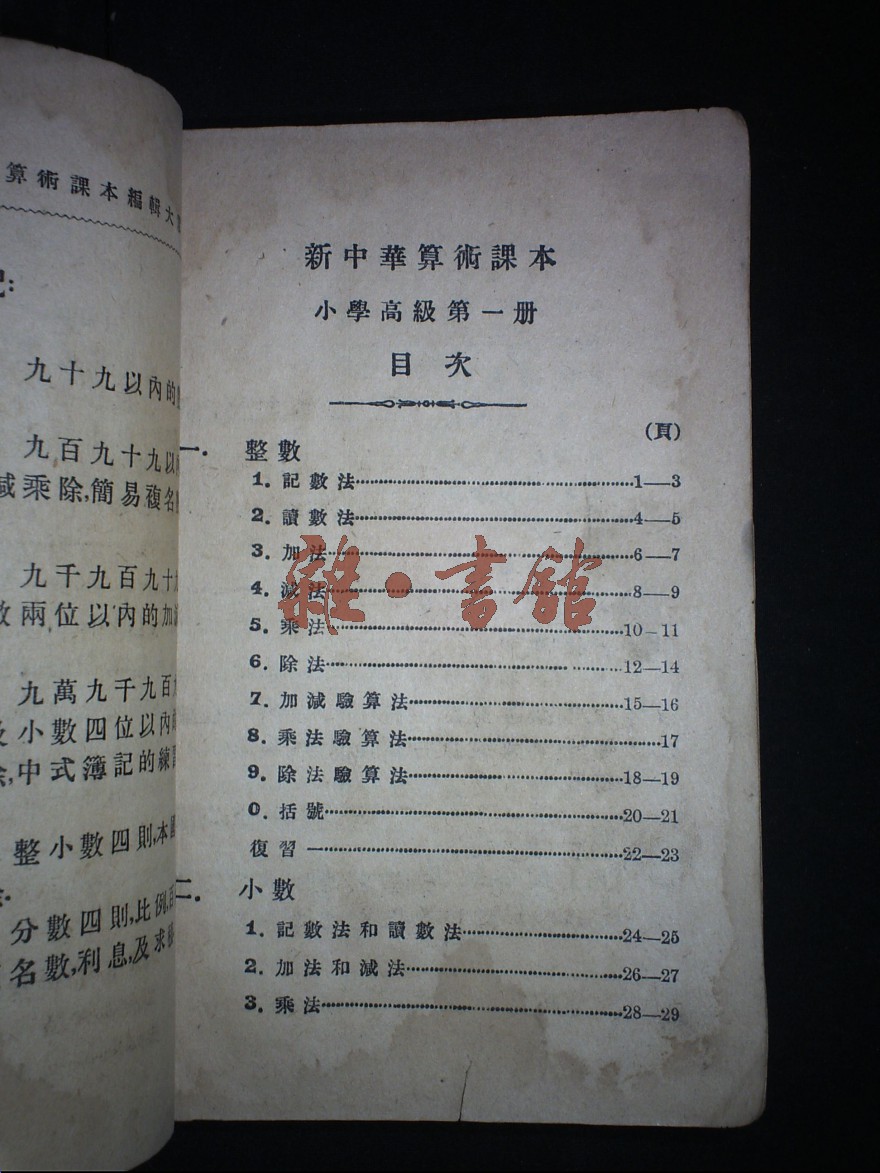 算術課本編輯大
九十九以內的
九百九十九以
減乘除,簡易複名
九千九百九十
數兩位以內的加減
九萬九千九百
及小數四位以內
除,中式簿記的練
整小數四則,本
分數四則,比例,百
名數,利息,及求積
新中華算術課本
小學高級第一册
目次
(頁)
一. 整數
1. 記數法 1—3
2. 讀數法 4—5
3. 加法 6—7
4. 減法 8—9
5. 乘法 10—11
6. 除法 12—14
7. 加減驗算法 15—16
8. 乘法驗算法 17
9. 除法驗算法 18—19
0. 括號 20—21
復習一 22—23
二. 小數
1. 記數法和讀數法 24—25
2. 加法和減法 26—27
3. 乘法 28—29
雜·書館